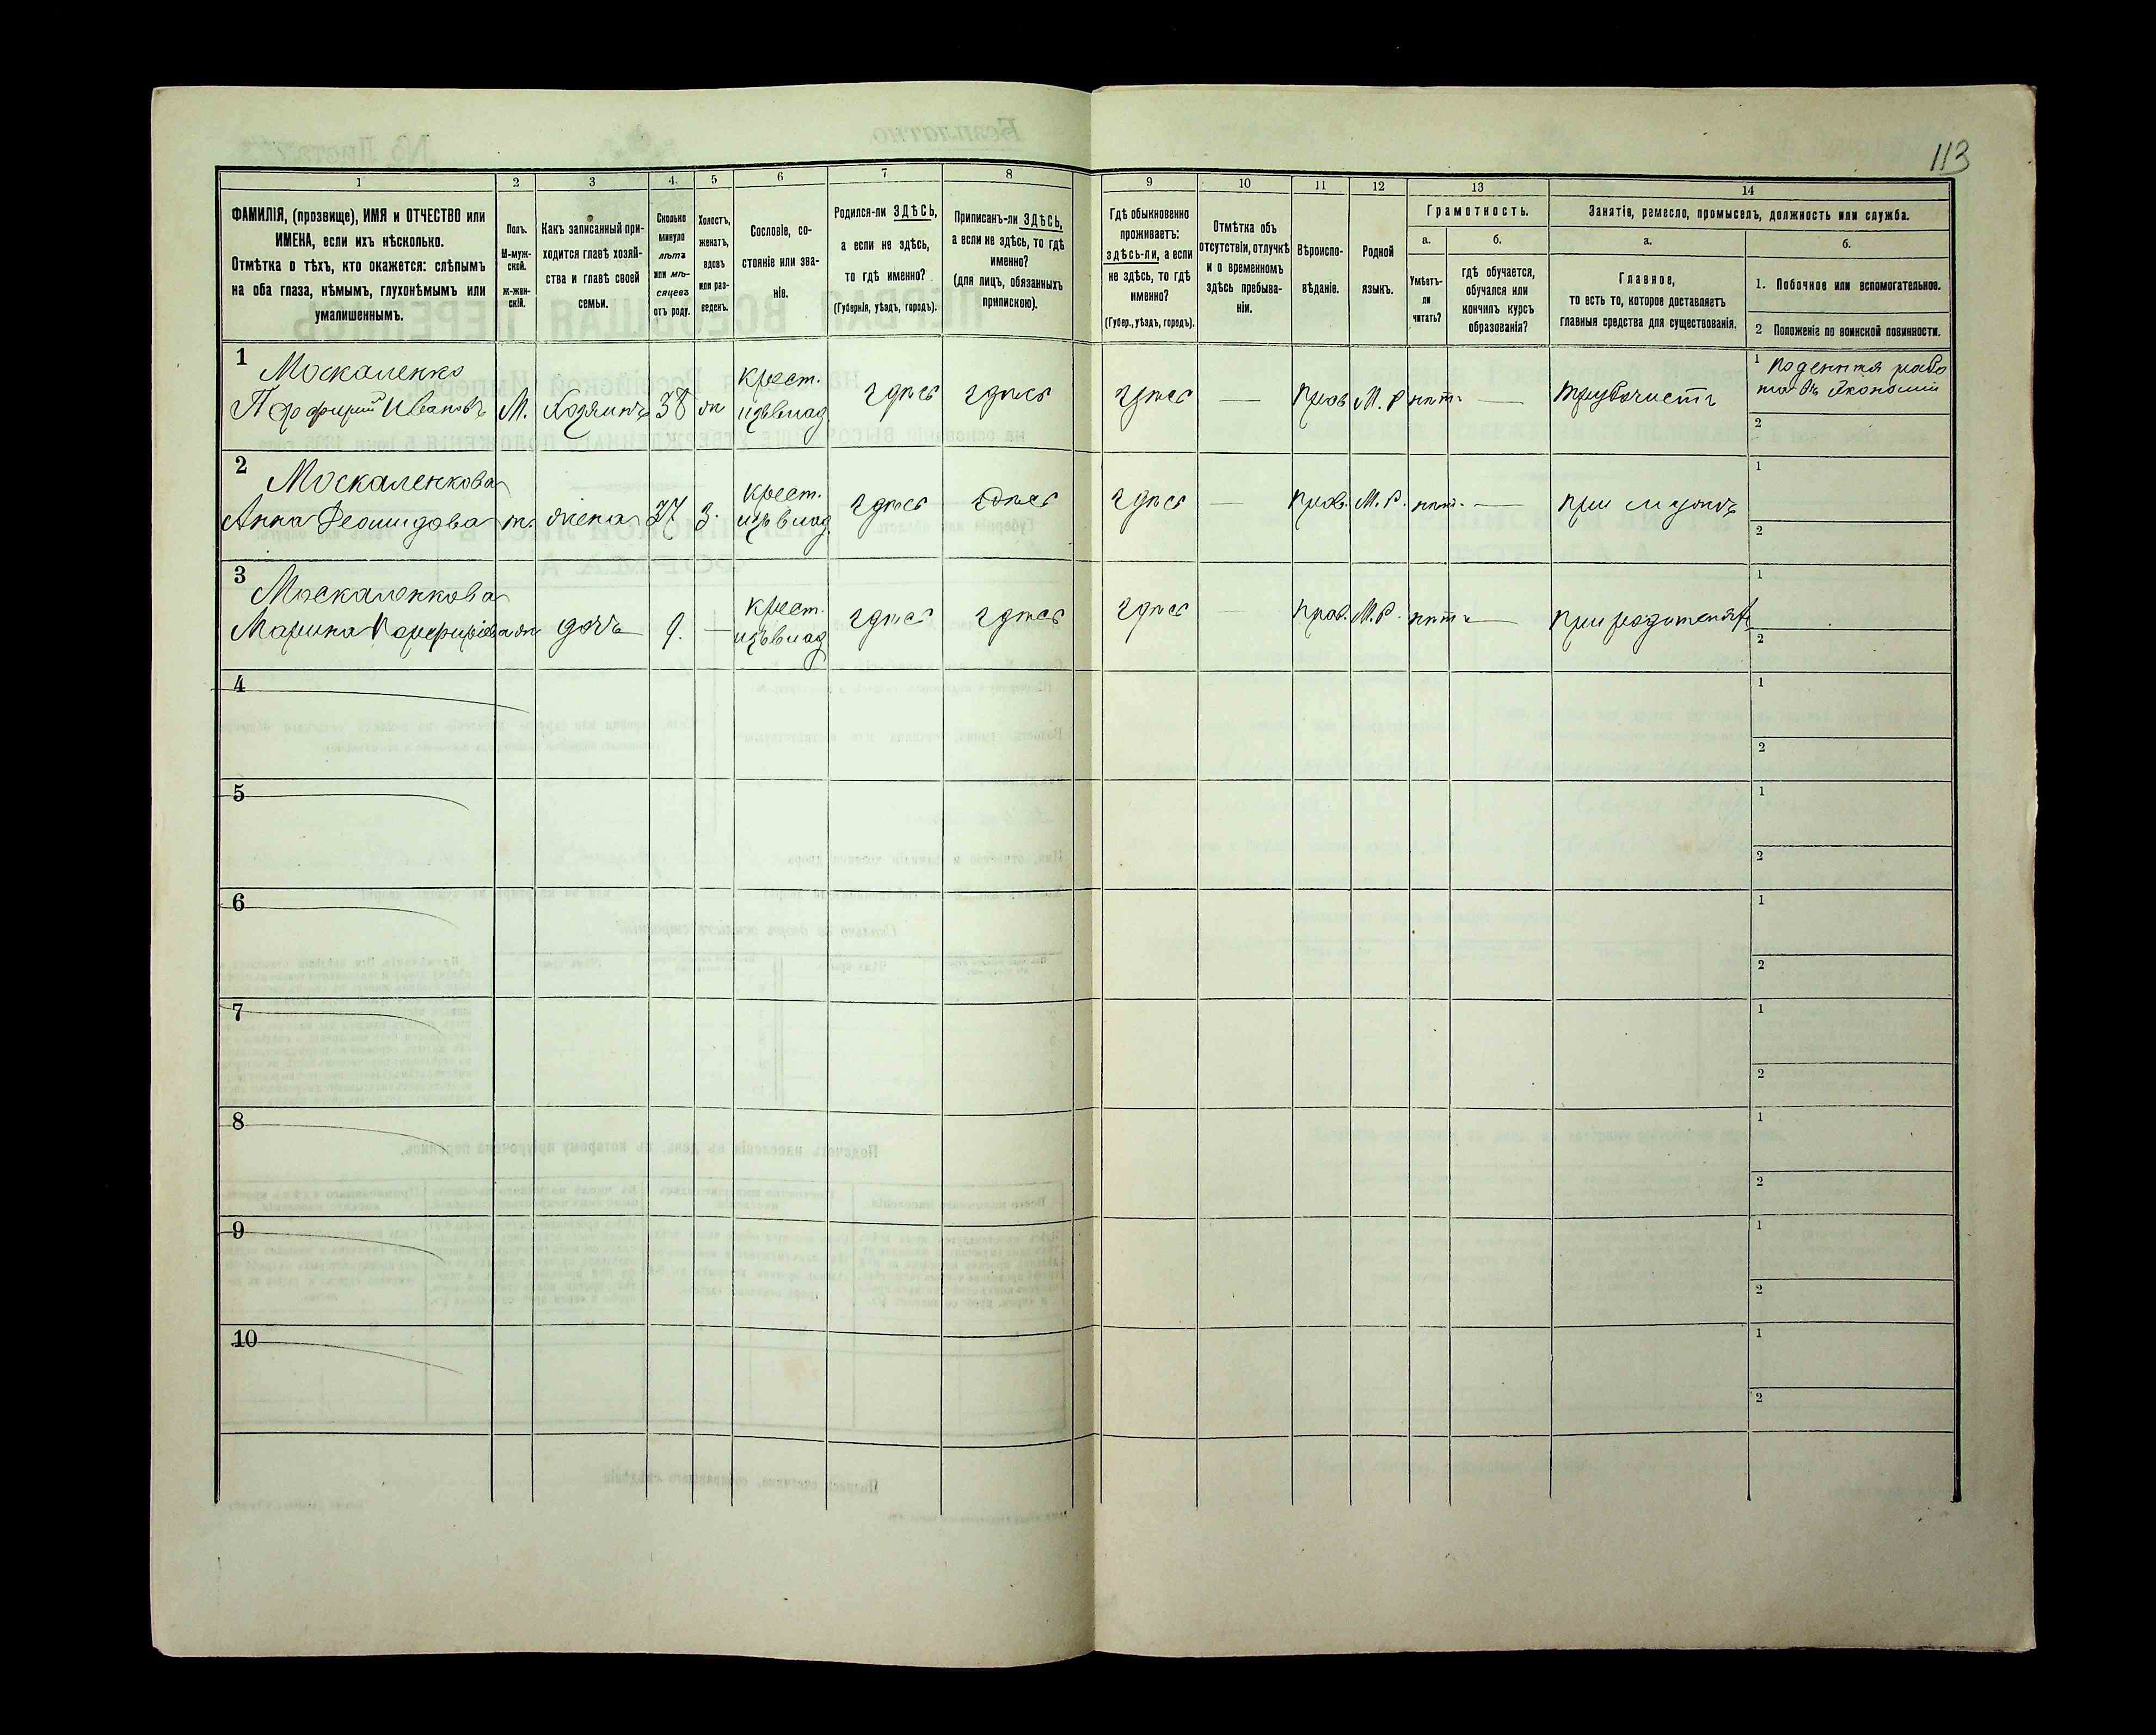 113
1 2 3 4. 5 6 7 8 9 10 11 12 13 14
ФАМИЛІЯ, (прозвище), ИМЯ и ОТЧЕСТВО или
ИМЕНА, если ихъ нѣсколько.
Отмѣтка о тѣхъ, кто окажется: слѣпымъ
на оба глаза, нѣмымъ, глухонѣмымъ или
умалишеннымъ.
Полъ.
М-муж-
ской.
ж-жен-
скій.
Какъ записанный при-
ходится главѣ хозяй-
ства и главѣ своей
семьи.
Сколько
минуло
лѣтъ
или мѣ-
сяцевъ
отъ роду.
Холостъ,
женатъ,
вдовъ
или раз-
веденъ.
Сословіе, со-
стояніе или зва-
ніе.
Родился-ли ЗДѢСЬ,
а если не здѣсь,
то гдѣ именно?
(Губернія, уѣздъ, городъ).
Приписанъ-ли ЗДѢСЬ,
а если не здѣсь, то гдѣ
именно?
(для лицъ, обязанныхъ
припискою).
Гдѣ обыкновенно
проживаетъ:
здѣсь-ли, а если
не здѣсь, то гдѣ
именно?
(Губер., уѣздъ, городъ).
Отмѣтка объ
отсутствіи, отлучкѣ
и о временномъ
здѣсь пребыва-
ніи.
Вѣроиспо-
вѣданіе.
Родной
языкъ.
Грамотность.
а.
Умѣетъ-
ли
читать?
б.
гдѣ обучается,
обучался или
кончилъ курсъ
образованія?
Занятіе, ремесло, промыселъ, должность или служба.
а.
Главное,
то есть то, которое доставляетъ
главныя средства для существованія.
б.
1. Побочное или вспомогательное.
2 Положеніе по воинской повинности.
1 Москаленко
Порфирій Ивановъ М. Хозяинъ 38 ж
Крест.
изъ влад.
здѣсь здѣсь здѣсь — прав М.Р нѣтъ — трубочистъ
1 поденная рабо
та въ экономіи
2
2 Москаленкова
Анна ж. жена 37 З.
Крест.
изъ влад.
здѣсь здѣсь здѣсь — прав. М.Р. нѣтъ — при мужѣ
1
2
3 Москаленкова
Марина Порфирiева ж дочь 9. —
Крест.
изъ влад
здѣсь здѣсь здѣсь — прав. М.Р. нѣтъ — при родителяхъ
1
2
4
1
2
5
1
2
6
1
2
7
1
2
8
1
2
9
1
2
10
1
2